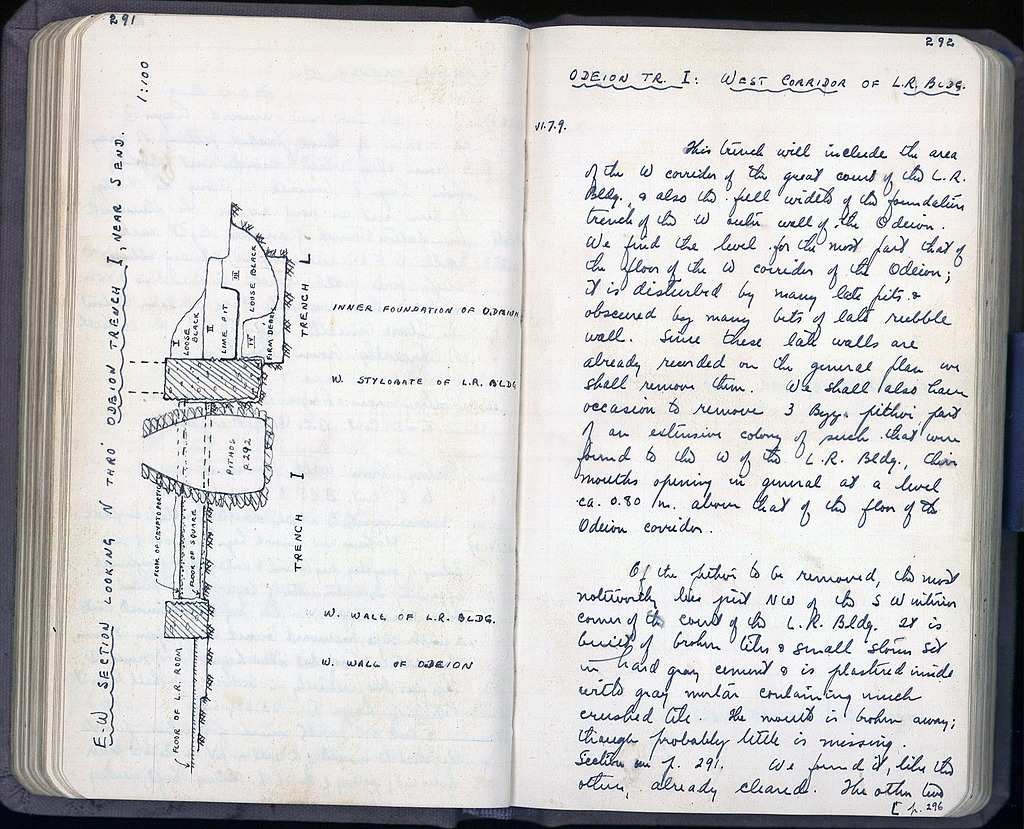 291
1:100
E-W SECTION LOOKING N THRO' ODEION TRENCH I, NEAR S END.
I
LOOSE BLACK
II
LIME PIT
III
LOOSE BLACK
IV
FIRM DEBRIS
TRENCH L
INNER FOUNDATION OF ODEION
W. STYLOBATE OF L.R. BLDG
PITHOS
p. 292
TRENCH I
FLOOR OF CRYPTOPORTICUS
FLOOR OF SQUARE
W. WALL OF L.R. BLDG.
W. WALL OF ODEION
FLOOR OF L.R. ROOM
292
ODEION TR. I: WEST CORRIDOR OF L.R. BLDG.
This trench will include the area
of the W corridor of the great court of the L.R.
Bldg., & also the full width of the foundation
trench of the W outer wall of the Odeion.
We find the level for the most part that of
the floor of the W corridor of the Odeion;
it is disturbed by many late pits &
obscured by many bits of late rubble
wall. Since these late walls are
already recorded on the general plan we
shall remove them. We shall also have
occasion to remove 3 Byz. pithoi, part
of an extensive colony of such that were
found to the W of the L.R. Bldg., their
mouths opening in general at a level
ca. 0.80 m. above that of the floor of the
Odeion corridor.
Of the pithoi to be removed, the most
noteworthy lies just NW of the SW interior
corner of the court of the L.R. Bldg. It is
built of broken tiles & small stones set
in hard gray cement & is plastered inside
with gray mortar containing much
crushed tile. The mouth is broken away;
though probably little is missing.
Section on p. 291. We found it, like the
others, already cleared. The other two
[p. 296